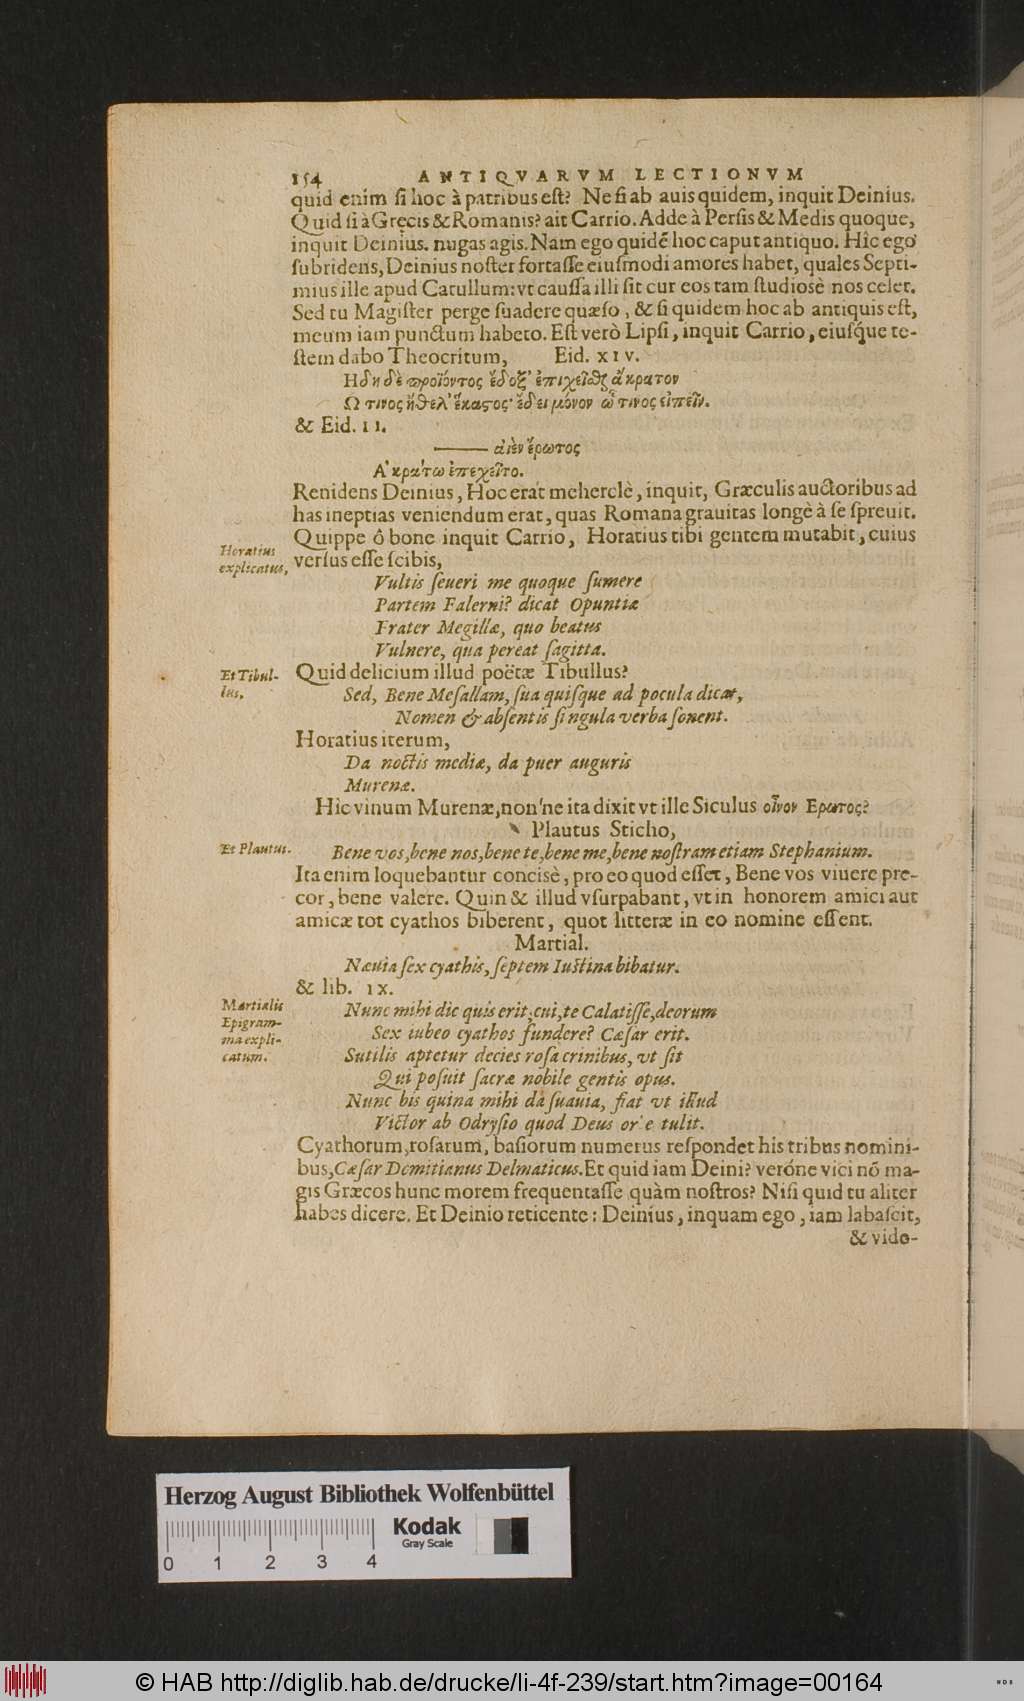 154 ANTIQVARVM LECTIONVM
quid enim ſi hoc à patribus eſt? Ne ſi ab auis quidem, inquit Deinius.
Quid ſi à Gręcis & Romanis? ait Carrio. Adde à Perſis & Medis quoque,
inquit Deinius. nugas agis. Nam ego quidē hoc caput antiquo. Hic ego
ſubridens, Deinius noſter fortaſſe eiuſmodi amores habet, quales Septi-
mius ille apud Catullum: vt cauſſa illi ſit cur eos tam ſtudiosè nos celet.
Sed tu Magiſter perge ſuadere quæſo, & ſi quidem hoc ab antiquis eſt,
meum iam punctum habeto. Eſt verò Lipſi, inquit Carrio, eiuſq́ue te-
ſtem dabo Theocritum, Eid. XIV.
Ηδη δὲ προϊόντος ἔδοξ' ἐπιχεῖσθαι ἄκρατον
Ω τινος ἤθελ' ἕκαστος· ἔδει μόνον ὧ τινος εἰπεῖν.
& Eid. II.
—— αἰὲν ἔρωτος
Ἀκράτω ἐπεχεῖτο.
Renidens Deinius, Hoc erat meherclè, inquit, Græculis auctoribus ad
has ineptias veniendum erat, quas Romana grauitas longè à ſe ſpreuit.
Quippe ô bone inquit Carrio, Horatius tibi gentem mutabit, cuius
Horatius
explicatus,
verſus eſſe ſcibis,
Vultis ſeueri me quoque ſumere
Partem Falerni? dicat Opuntiæ
Frater Megillæ, quo beatus
Vulnere, qua pereat ſagitta.
Et Tibul-
lus,
Quid delicium illud poëtæ Tibullus?
Sed, Bene Meſallam, ſua quiſque ad pocula dicat,
Nomen & abſentis ſingula verba ſonent.
Horatius iterum,
Da noctis mediæ, da puer auguris
Murenæ.
Hic vinum Murenæ, non'ne ita dixit vt ille Siculus οἶνον Ερωτος?
Plautus Sticho,
Et Plautus.
Bene vos, bene nos, bene te, bene me, bene noſtram etiam Stephanium.
Ita enim loquebantur concisè, pro eo quod eſſet, Bene vos viuere pre-
cor, bene valere. Quin & illud vſurpabant, vt in honorem amici aut
amicæ tot cyathos biberent, quot litteræ in eo nomine eſſent.
Martial.
Næuia ſex cyathis, ſeptem Iuſtina bibatur.
& lib. IX.
Martialis
Epigram-
ma expli-
catum.
Nunc mihi dic quis erit, cui, te Calatiſſe, deorum
Sex iubeo cyathos fundere? Cæſar erit.
Sutilis aptetur decies roſa crinibus, vt ſit
Qui poſuit ſacræ nobile gentis opus.
Nunc bis quina mihi da ſuauia, fiat vt illud
Victor ab Odryſio quod Deus orbe tulit.
Cyathorum, roſarum, baſiorum numerus reſpondet his tribus nomini-
bus, Cæſar Domitianus Delmaticus. Et quid iam Deini? veróne vici nō ma-
gis Græcos hunc morem frequentaſſe quàm noſtros? Niſi quid tu aliter
habes dicere. Et Deinio reticente: Deinius, inquam ego, iam labaſcit,
& vide-
Herzog August Bibliothek Wolfenbüttel
Kodak
Gray Scale
0 1 2 3 4
© HAB http://diglib.hab.de/drucke/li-4f-239/start.htm?image=00164